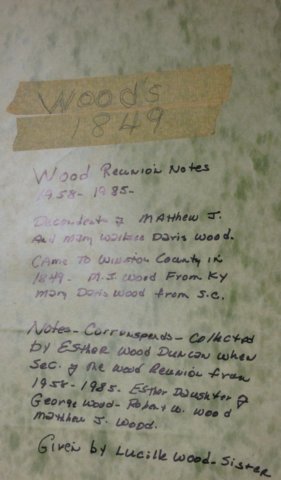 Wood's
1849
Wood Reunion Notes
1958-1985-
Decendents of Matthew J.
And Mary Walker Davis Wood.
Came To Winston County in
1849- M.J. Wood From Ky
Mary Davis Wood from S.C.
Notes- Corrunsponds- Collected
by Esther Wood Duncan when
Sec. of the Wood Reunion from
1958-1985. Esther Daughter of
George Wood- Robert W. Wood
Matthew J. Wood.
Given by Lucille Wood- Sister